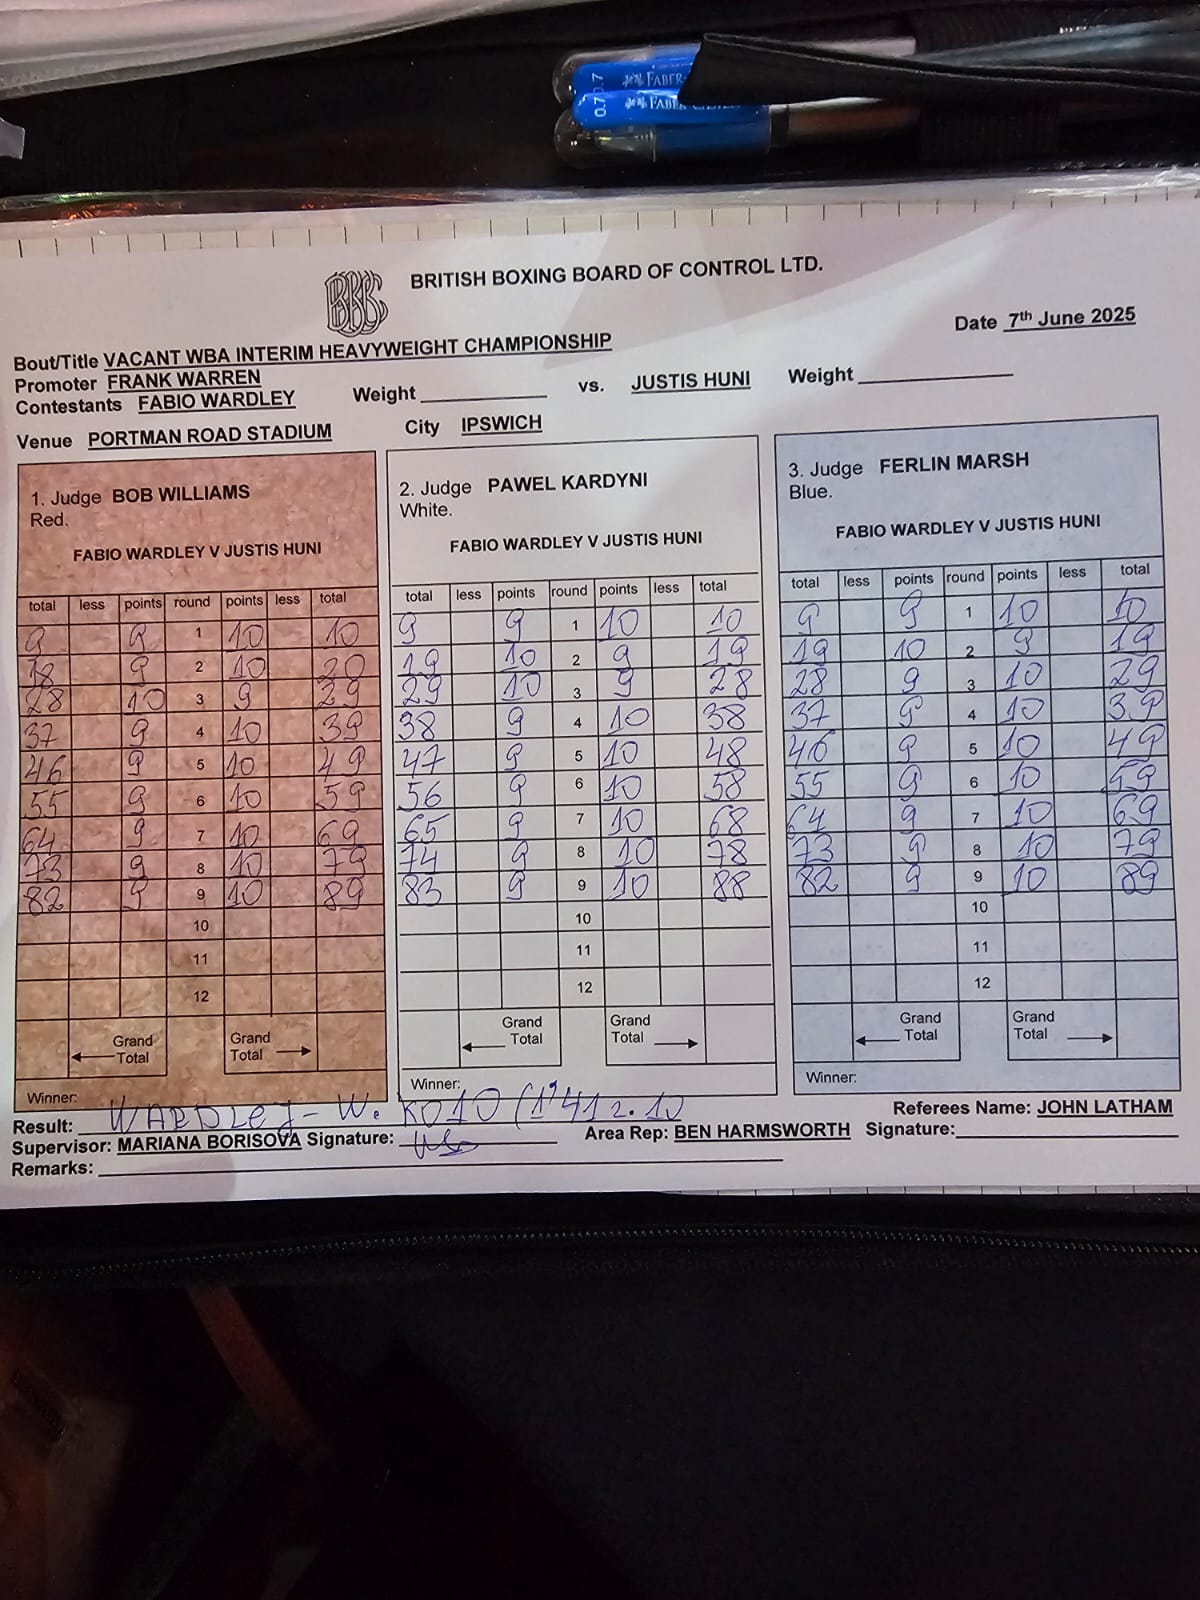 0.7 FABER-
0.7 FABER-CASTELL
BBBC
BRITISH BOXING BOARD OF CONTROL LTD.
Date 7th June 2025
Bout/Title VACANT WBA INTERIM HEAVYWEIGHT CHAMPIONSHIP
Promoter FRANK WARREN
Contestants FABIO WARDLEY Weight vs. JUSTIS HUNI Weight
Venue PORTMAN ROAD STADIUM City IPSWICH
1. Judge BOB WILLIAMS
Red.
FABIO WARDLEY V JUSTIS HUNI
total less points round points less total
9 9 1 10 10
18 9 2 10 20
28 10 3 9 29
37 9 4 10 39
46 9 5 10 49
55 9 6 10 59
64 9 7 10 69
73 9 8 10 79
82 9 9 10 89
10
11
12
Grand Total Grand Total
Winner:
2. Judge PAWEL KARDYNI
White.
FABIO WARDLEY V JUSTIS HUNI
total less points round points less total
9 9 1 10 10
19 10 2 9 19
29 10 3 9 28
38 9 4 10 38
47 9 5 10 48
56 9 6 10 58
65 9 7 10 68
74 9 8 10 78
83 9 9 10 88
10
11
12
Grand Total Grand Total
Winner:
3. Judge FERLIN MARSH
Blue.
FABIO WARDLEY V JUSTIS HUNI
total less points round points less total
9 9 1 10 10
19 10 2 9 19
28 9 3 10 29
37 9 4 10 39
46 9 5 10 49
55 9 6 10 59
64 9 7 10 69
73 9 8 10 79
82 9 9 10 89
10
11
12
Grand Total Grand Total
Winner:
Result: WARDLEJ - W. KO10 (1'41 r. 10
Referees Name: JOHN LATHAM
Supervisor: MARIANA BORISOVA Signature: Area Rep: BEN HARMSWORTH Signature:
Remarks: